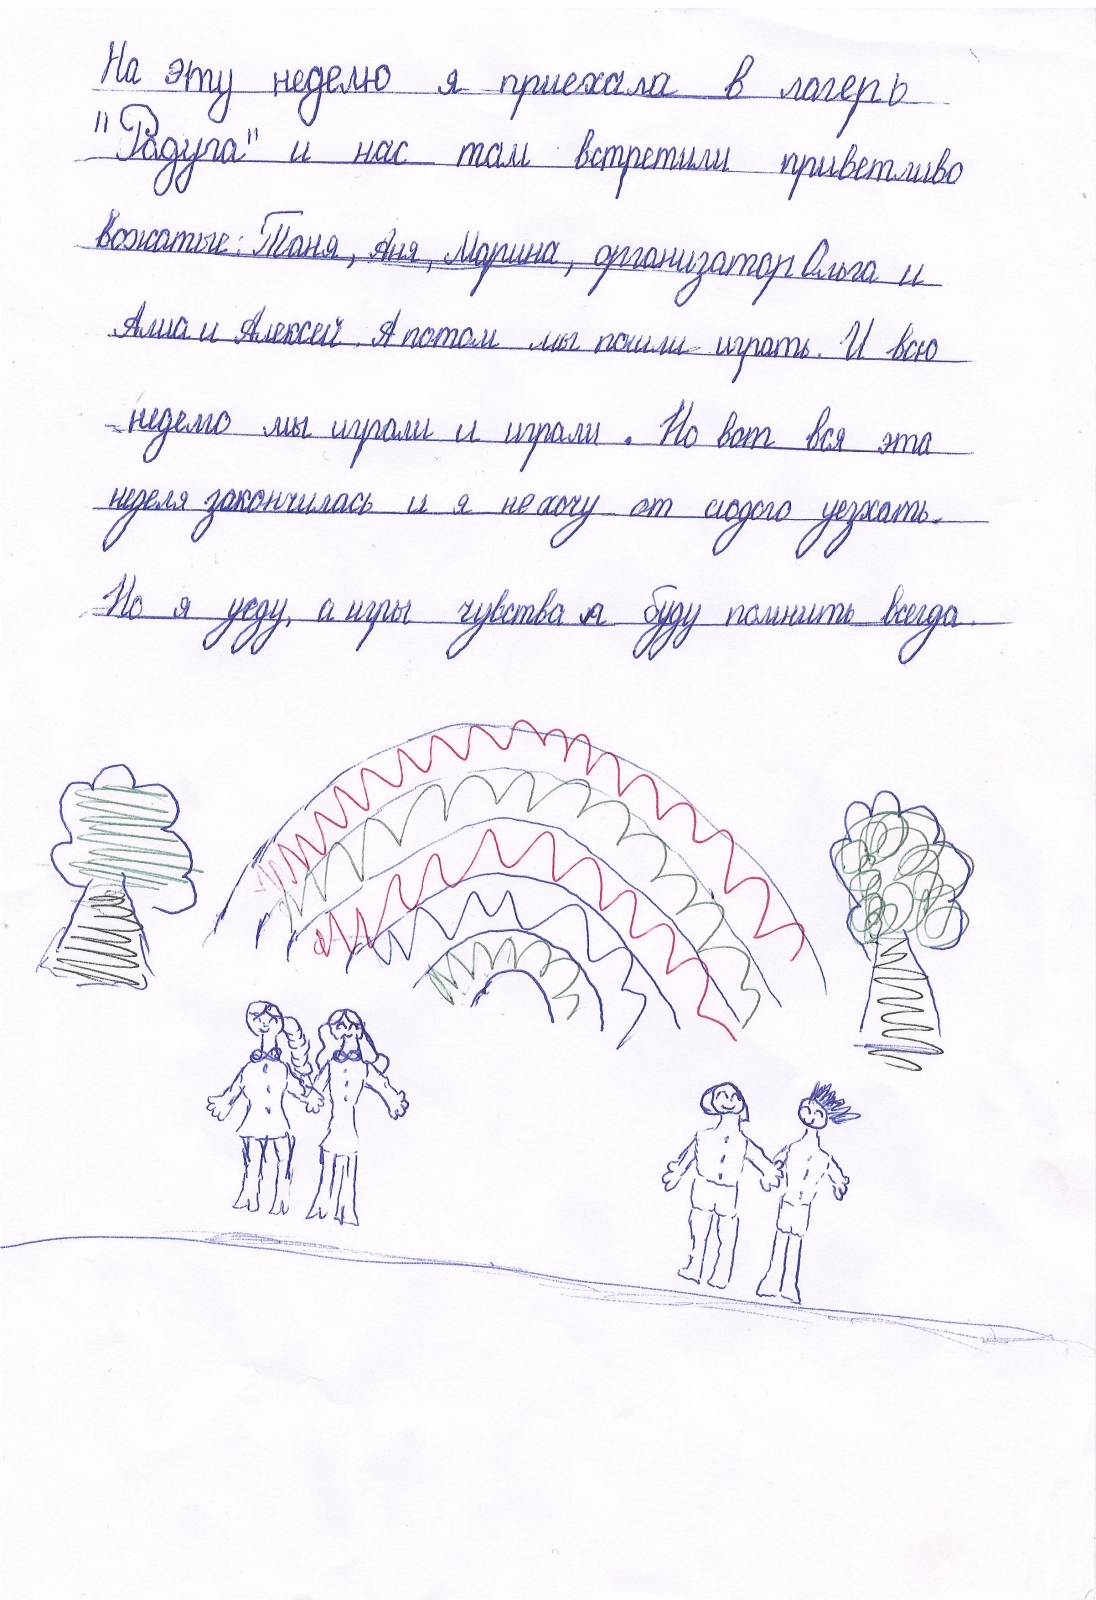 На эту неделю я приехала в лагерь
"Радуга" и нас там встретили приветливо
вожатые: Таня, Аня, Марина, организатор Ольга и
Алла и Алексей. А потом мы пошли играть. И всю
неделю мы играли и играли. Но вот вся эта
неделя закончилась и я не хочу от сюдого уезжать.
Но я уеду, а игры чувства я буду помнить всегда.